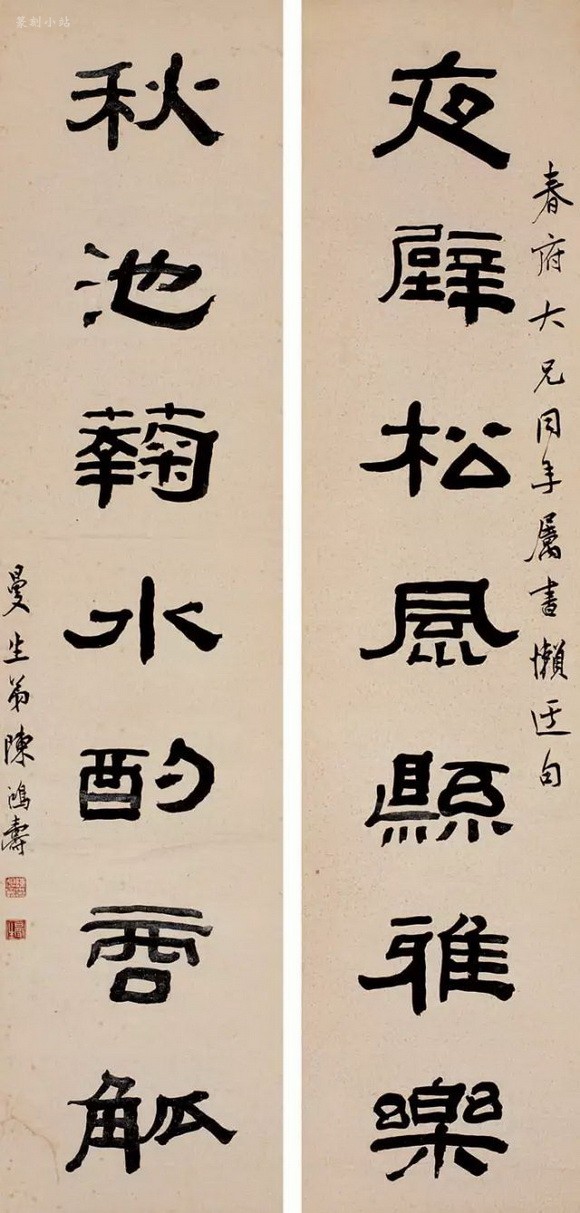 篆刻小站
春府大兄同年屬書懶迂句
夜壁松風縣雅樂
秋池蘜水酌觚
曼生弟陳鴻壽